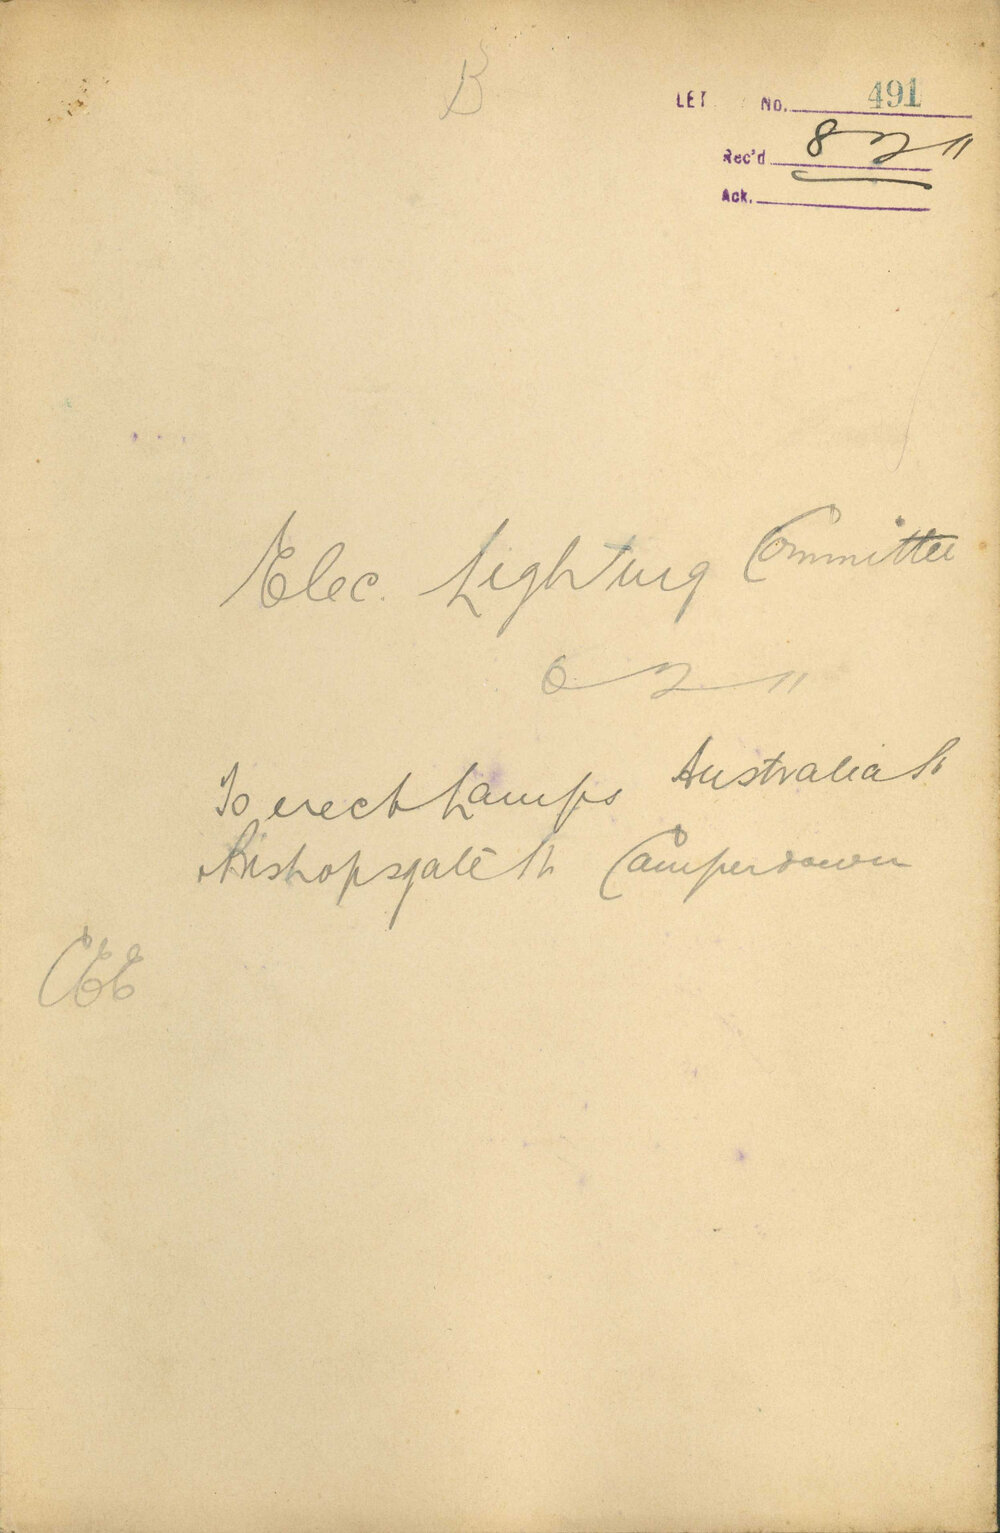 B
LET No. 491
Rec'd 8-2-11
Ack.
Elec. Lighting Committee
6-2-11
To erect Lamps Australia St
Bishopsgate St Camperdown
CEE